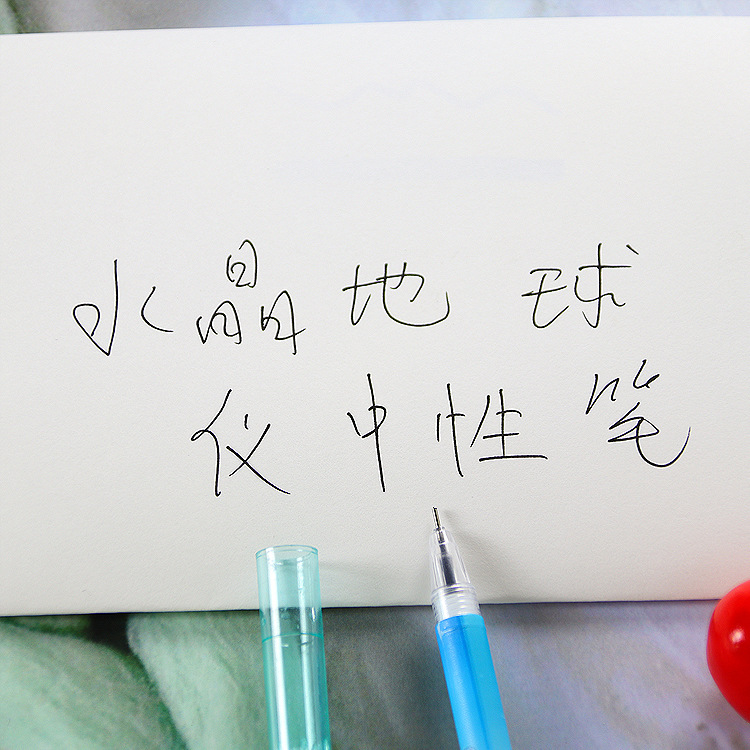 水晶地球
仪中性笔